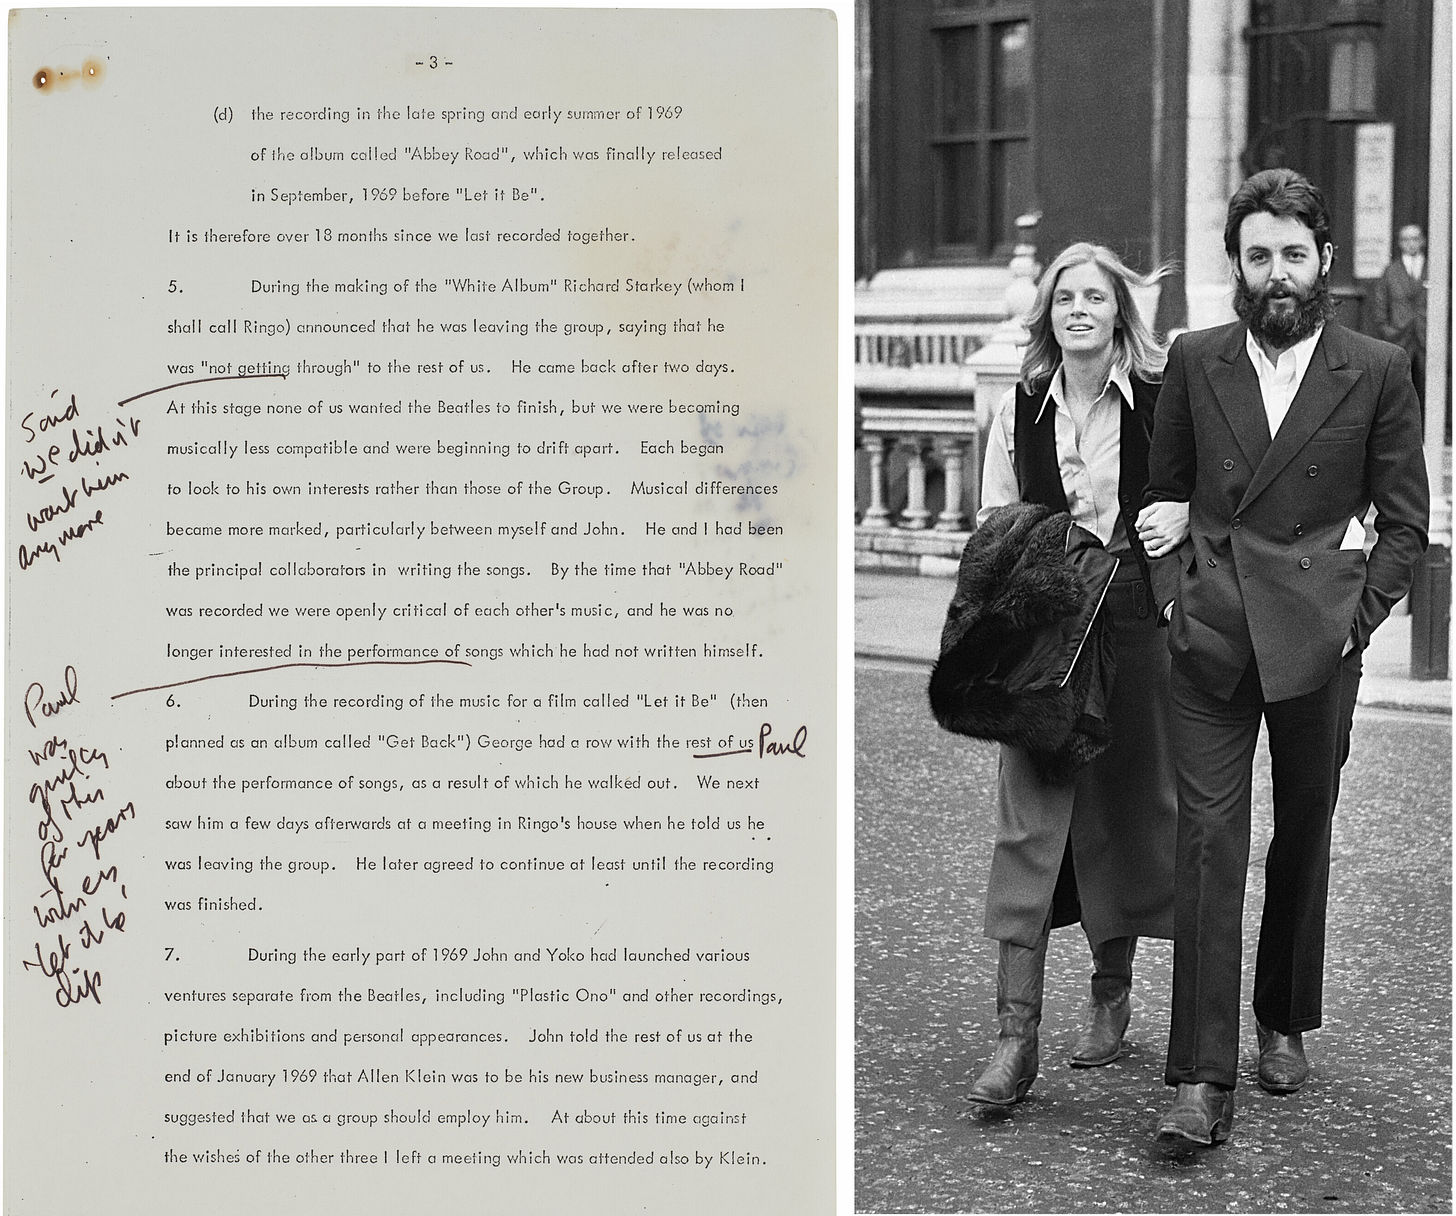 - 3 -
(d) the recording in the late spring and early summer of 1969
of the album called "Abbey Road", which was finally released
in September, 1969 before "Let it Be".
It is therefore over 18 months since we last recorded together.
5. During the making of the "White Album" Richard Starkey (whom I
shall call Ringo) announced that he was leaving the group, saying that he
was "not getting through" to the rest of us. He came back after two days.
At this stage none of us wanted the Beatles to finish, but we were becoming
musically less compatible and were beginning to drift apart. Each began
to look to his own interests rather than those of the Group. Musical differences
became more marked, particularly between myself and John. He and I had been
the principal collaborators in writing the songs. By the time that "Abbey Road"
was recorded we were openly critical of each other's music, and he was no
longer interested in the performance of songs which he had not written himself.
6. During the recording of the music for a film called "Let it Be" (then
planned as an album called "Get Back") George had a row with the rest of us Paul
about the performance of songs, as a result of which he walked out. We next
saw him a few days afterwards at a meeting in Ringo's house when he told us he
was leaving the group. He later agreed to continue at least until the recording
was finished.
7. During the early part of 1969 John and Yoko had launched various
ventures separate from the Beatles, including "Plastic Ono" and other recordings,
picture exhibitions and personal appearances. John told the rest of us at the
end of January 1969 that Allen Klein was to be his new business manager, and
suggested that we as a group should employ him. At about this time against
the wishes of the other three I left a meeting which was attended also by Klein.
Said
we didn't
want him
anymore
Paul
was
guilty
of this
for years
witness
'let it be'
clip